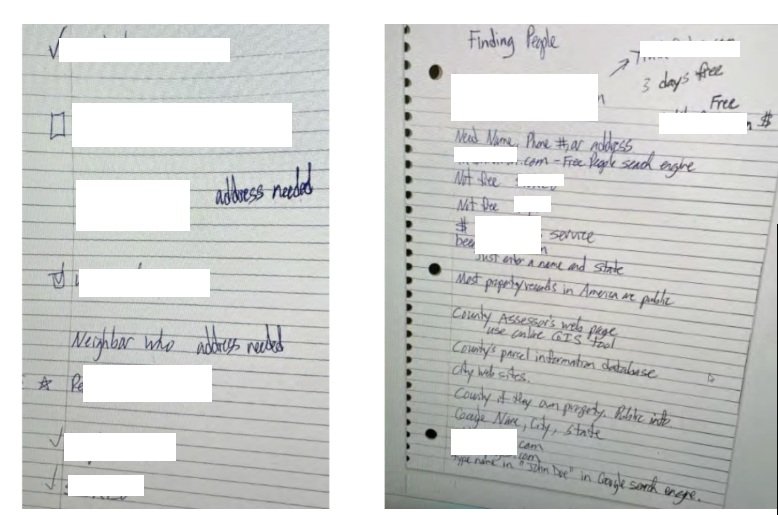 address needed
Neighbar who address needed
Finding People
3 days free
Free
$
Need Name, Phone #, or address
.com - Free People search engine
Not free
Not free
$ service
Just enter a name and state
Most property records in America are public
County Assessor's web page
use online GIS tool
County's parcel information database
city web sites.
County if they own property. Public info
Google Name, City, State
.com
.com
Type name in "John Doe" in Google search engine.